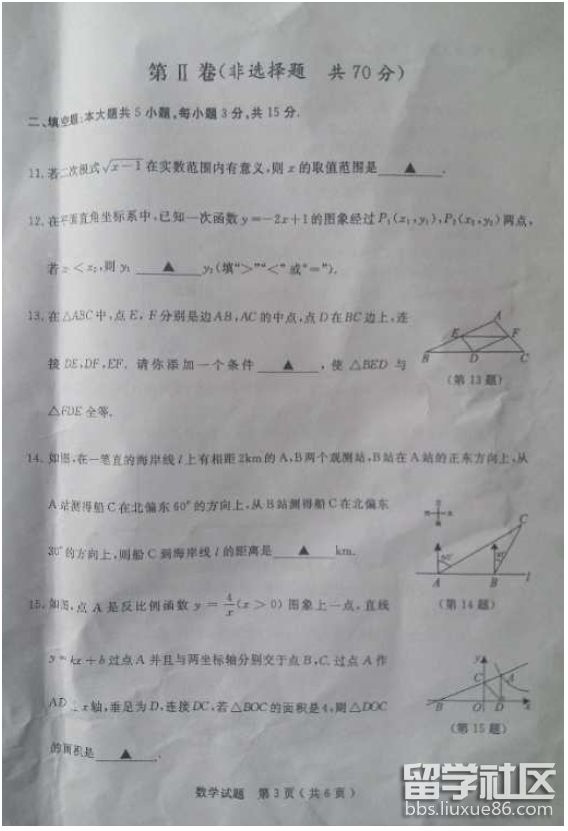 第Ⅱ卷(非选择题 共70分)
二、填空题:本大题共5小题,每小题3分,共15分.
11.若二次根式√x-1在实数范围内有意义,则x的取值范围是 ▲ .
12.在平面直角坐标系中,已知一次函数y=-2x+1的图象经过P₁(x₁,y₁),P₂(x₂,y₂)两点,
若x₁<x₂,则y₁ ▲ y₂(填“>”“<”或“=”).
13.在△ABC中,点E,F分别是边AB,AC的中点,点D在BC边上,连
接DE,DF,EF.请你添加一个条件 ▲ ,使△BED与
△FDE全等.
A
E
F
B
D
C
(第13题)
14.如图,在一笔直的海岸线l上有相距2km的A,B两个观测站,B站在A站的正东方向上,从
A站测得船C在北偏东60°的方向上,从B站测得船C在北偏东
30°的方向上,则船C到海岸线l的距离是 ▲ km.
C
60°
30°
A
B
l
(第14题)
15.如图,点A是反比例函数y=4/x(x>0)图象上一点,直线
y=kx+b过点A并且与两坐标轴分别交于点B,C.过点A作
AD⊥x轴,垂足为D,连接DC,若△BOC的面积是4,则△DOC
的面积是 ▲ .
y
C
A
B
O
D
x
(第15题)
数学试题 第3页(共6页)
留学社区
bbs.liuxue86.com